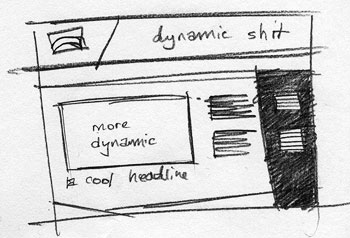 dynamic shit
more
dynamic
cool headline